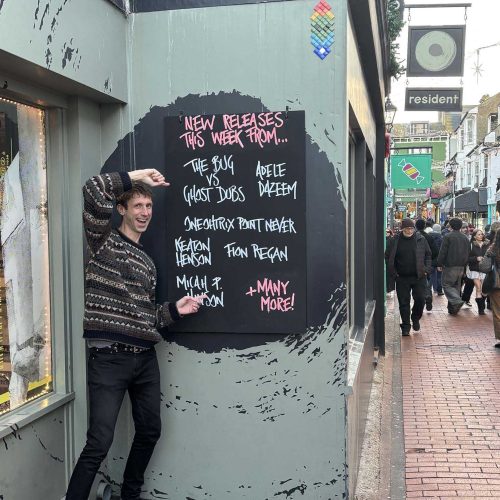 resident
NEW RELEASES
THIS WEEK FROM...
THE BUG
VS
GHOST DUBS
ADELE
DAZEEM
ONEOHTRIX POINT NEVER
KEATON
HENSON
FION REGAN
MICAH P.
+MANY
MORE!